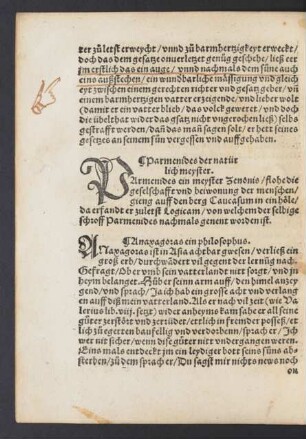 ter zů letst erweycht / vnnd zů barmhertzigkeyt erweckt /
doch das dem gesatze onuerletzet genůg geschehe / ließ er
jm erstlich das ein auge / vnnd nachmals dem süne auch
eins außstechen / ein wundbarliche mässigung vnd gleich
eyt zwischen einem gerechten richter vnd gesatz geber / vñ
einem barmhertzigen vatter erzeigende / vnd lieber wolt
(damit er ein vatter blieb / das volck gewert / vnd doch
die übelthat wider das gsatz nicht vngerochen ließ) selbs
gestrafft werden / dañ das mañ sagen solt / er hett seines
gesetzes an seinem sün vergessen vnd auffgehaben.
¶ Parmenides der natür
lich meyster.
PArmenides ein meyster Zenonis / flohe die
geselschafft vnd beiwonung der menschen /
gieng auff den berg Caucasum in ein hôle /
da erfandt er zůletst Logicam / von welchem der selbige
schroff Parmenides nachmals genent worden ist.
¶ Anaxagoras ein philosophus.
ANaxagoras ist in Asia achtbar gwesen / verließ ein
groß erb / durchwâdert vil gegent der lernũg nach.
Gefragt / Ob er vmb sein vatterland nitt sorgt / vnd jn
heym belanget. Hůb er seinn arm auff / den himel anzey
gend / vnd sprach / Ja ich hab ein grosse acht vnd verlang
en auff diß mein vatterland. Als er nach vil zeit (wie Va
lerius lib. viij. setzt) wider anheyms kam sahe er all seine
güter zerstört vnd zerrüder / ettlich in frembder possess / et
lich zů ettern baufellig vnd verdorbenn / sprach er / Jch
wer nit sicher / wenn dise güter nitt vndergangen weren.
Eins mals entdeckt jm ein leydiger bott seins süns ab-
sterben / zů dem sprach er / Du sagst mir nichts news noch
on